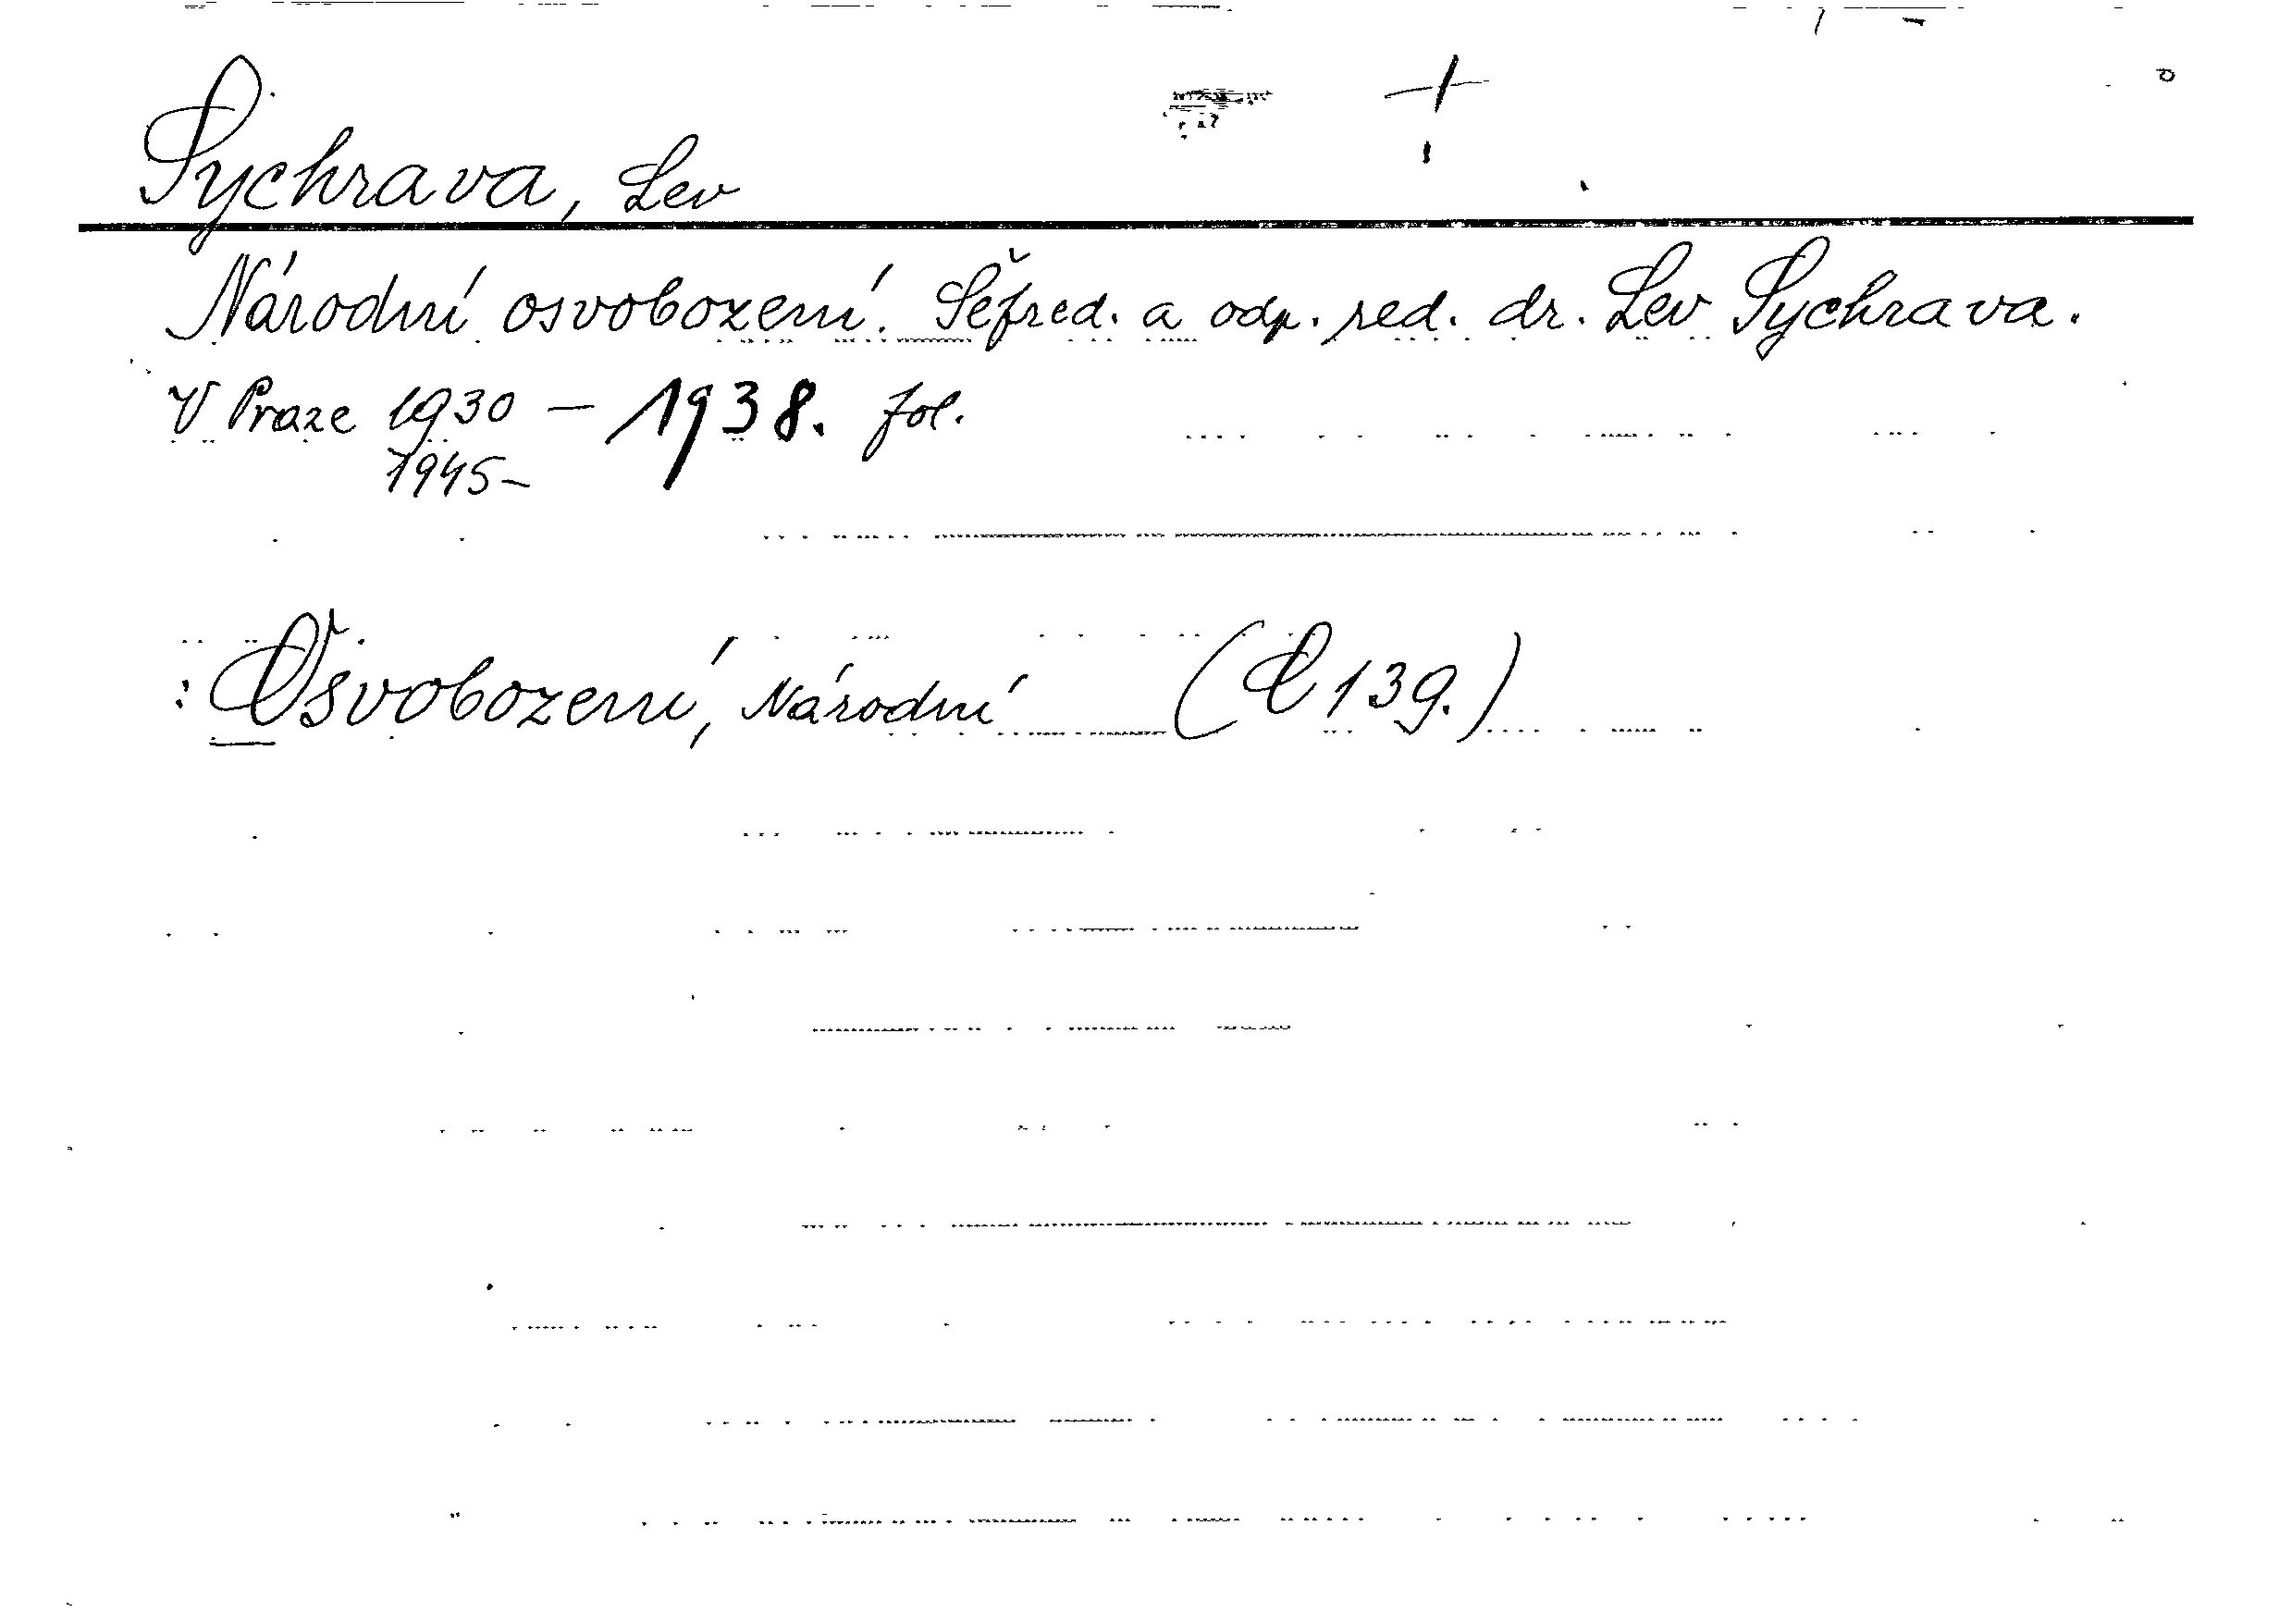 Sychrava, Lev
Národní osvobození. Šéfred. a odp. red. dr. Lev Sychrava.
V Praze 1930 – 1938. fol.
1945–
: Osvobození, Národní (C 139.)